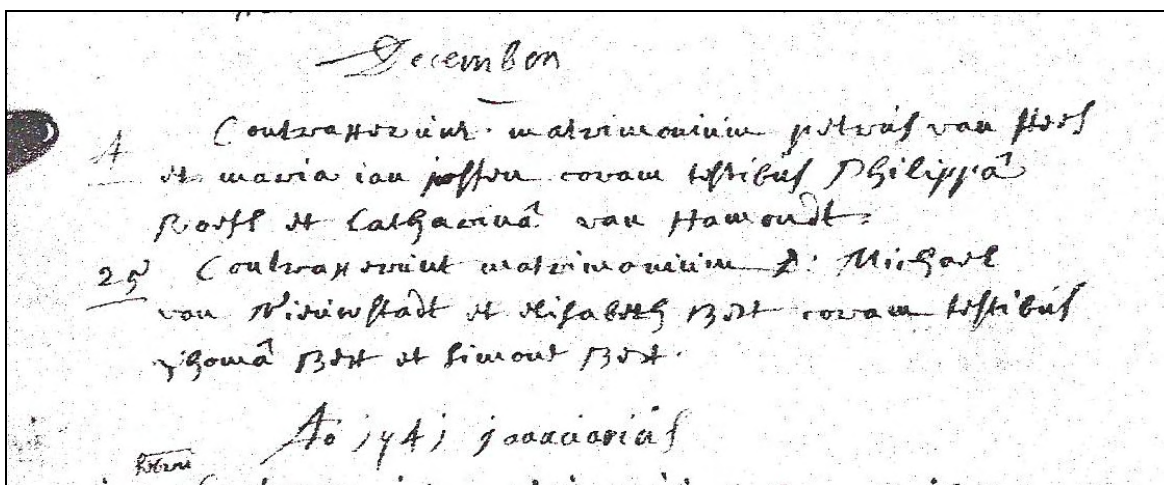 December
4 Contraxerunt matrimonium petrus van Hees
et maria ian josten coram testibus Philippâ
Roest et Catharinâ van Hamondt.
25 Contraxerunt matrimonium D: Michael
van Nieuwstadt et elisabeth Bext coram testibus
Thomâ Bext et simone Bext.
Ao 1741 januarius